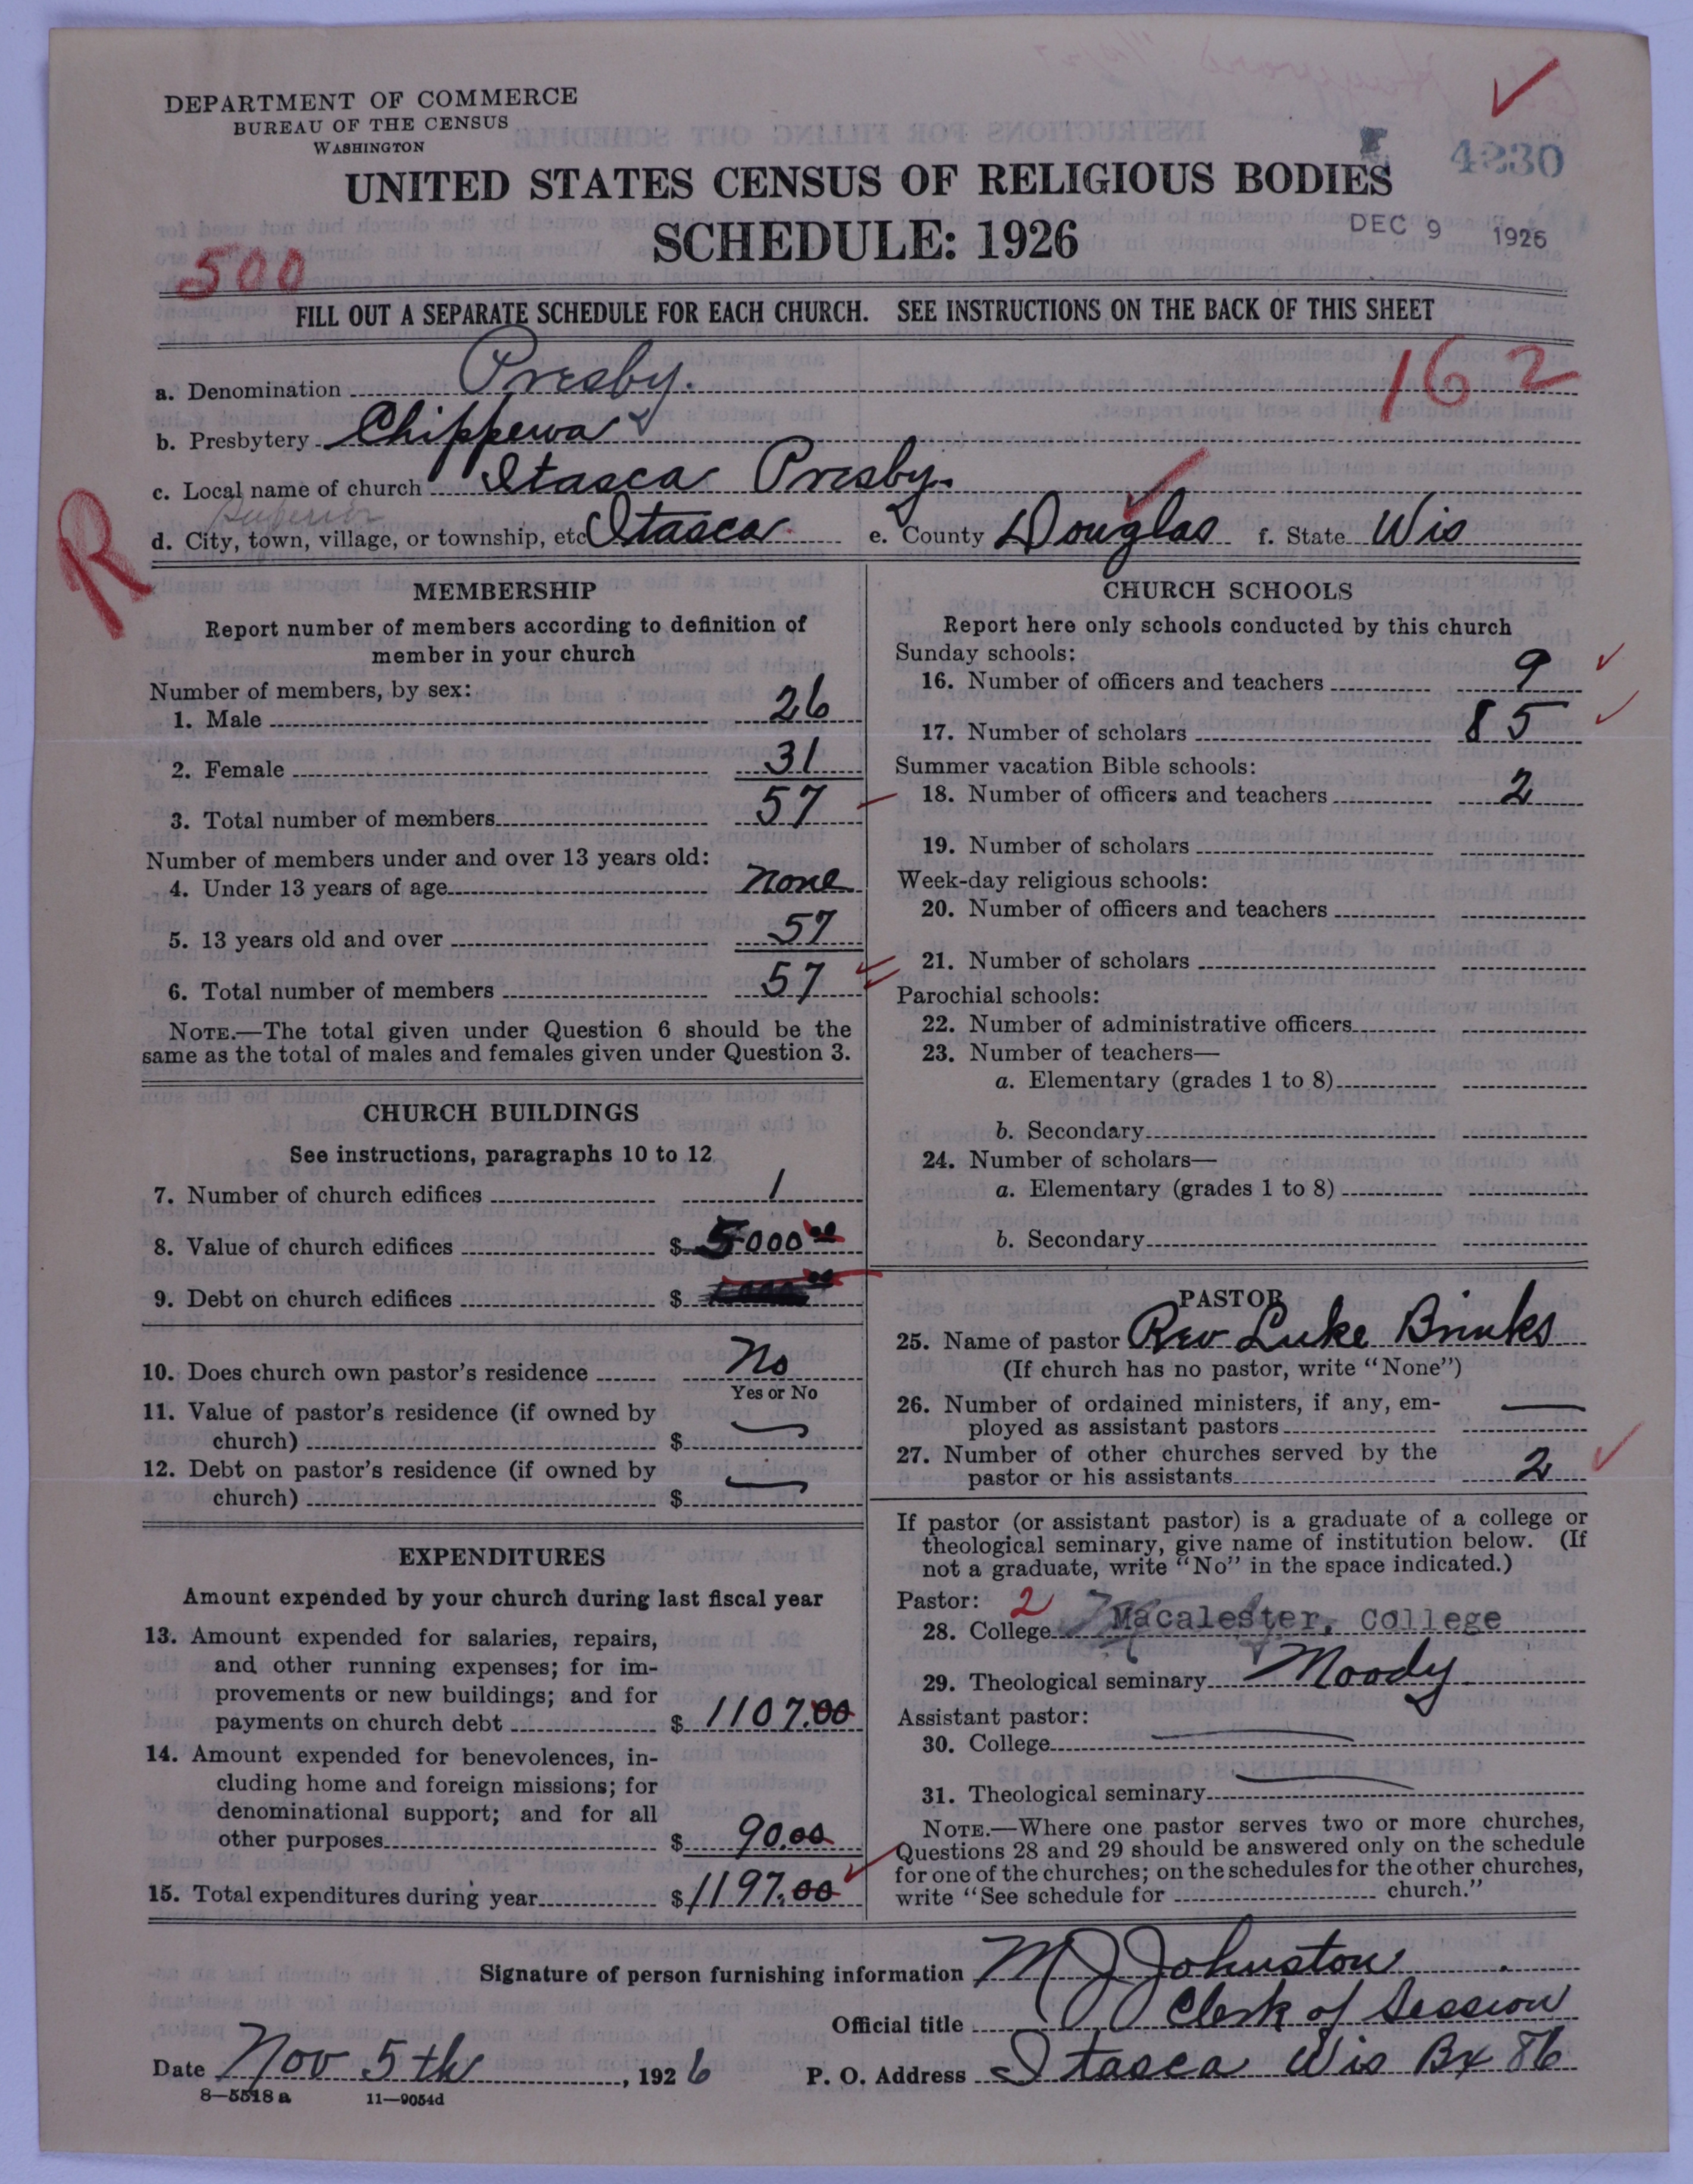 DEPARTMENT OF COMMERCE
BUREAU OF THE CENSUS
WASHINGTON
4230
UNITED STATES CENSUS OF RELIGIOUS BODIES
SCHEDULE: 1926
DEC 9 1926
500
FILL OUT A SEPARATE SCHEDULE FOR EACH CHURCH. SEE INSTRUCTIONS ON THE BACK OF THIS SHEET
162
a. Denomination Presby.
b. Presbytery Chippewa
c. Local name of church Itasca Presby.
Superior
R
d. City, town, village, or township, etc Itasca e. County Douglas f. State Wis
MEMBERSHIP
Report number of members according to definition of
member in your church
Number of members, by sex:
1. Male 26
2. Female 31
3. Total number of members 57
Number of members under and over 13 years old:
4. Under 13 years of age none
5. 13 years old and over 57
6. Total number of members 57
NOTE.—The total given under Question 6 should be the
same as the total of males and females given under Question 3.
CHURCH BUILDINGS
See instructions, paragraphs 10 to 12
7. Number of church edifices 1
8. Value of church edifices $ 5000 00
9. Debt on church edifices $
10. Does church own pastor's residence No
Yes or No
11. Value of pastor's residence (if owned by
church) $
12. Debt on pastor's residence (if owned by
church) $
EXPENDITURES
Amount expended by your church during last fiscal year
13. Amount expended for salaries, repairs,
and other running expenses; for im-
provements or new buildings; and for
payments on church debt $ 1107.00
14. Amount expended for benevolences, in-
cluding home and foreign missions; for
denominational support; and for all
other purposes $ 90.00
15. Total expenditures during year $ 1197.00
CHURCH SCHOOLS
Report here only schools conducted by this church
Sunday schools:
16. Number of officers and teachers 9
17. Number of scholars 85
Summer vacation Bible schools:
18. Number of officers and teachers 2
19. Number of scholars
Week-day religious schools:
20. Number of officers and teachers
21. Number of scholars
Parochial schools:
22. Number of administrative officers
23. Number of teachers—
a. Elementary (grades 1 to 8)
b. Secondary
24. Number of scholars—
a. Elementary (grades 1 to 8)
b. Secondary
PASTOR
25. Name of pastor Rev Luke Brinks
(If church has no pastor, write "None")
26. Number of ordained ministers, if any, em-
ployed as assistant pastors
27. Number of other churches served by the
pastor or his assistants 2
If pastor (or assistant pastor) is a graduate of a college or
theological seminary, give name of institution below. (If
not a graduate, write "No" in the space indicated.)
Pastor: 2
28. College Macalester, College
29. Theological seminary Moody
Assistant pastor:
30. College
31. Theological seminary
NOTE.—Where one pastor serves two or more churches,
Questions 28 and 29 should be answered only on the schedule
for one of the churches; on the schedules for the other churches,
write "See schedule for church."
Signature of person furnishing information M J Johnston
Official title Clerk of Session
Date Nov 5th, 1926 P. O. Address Itasca Wis Bx 86
8—5518 a 11—9054d